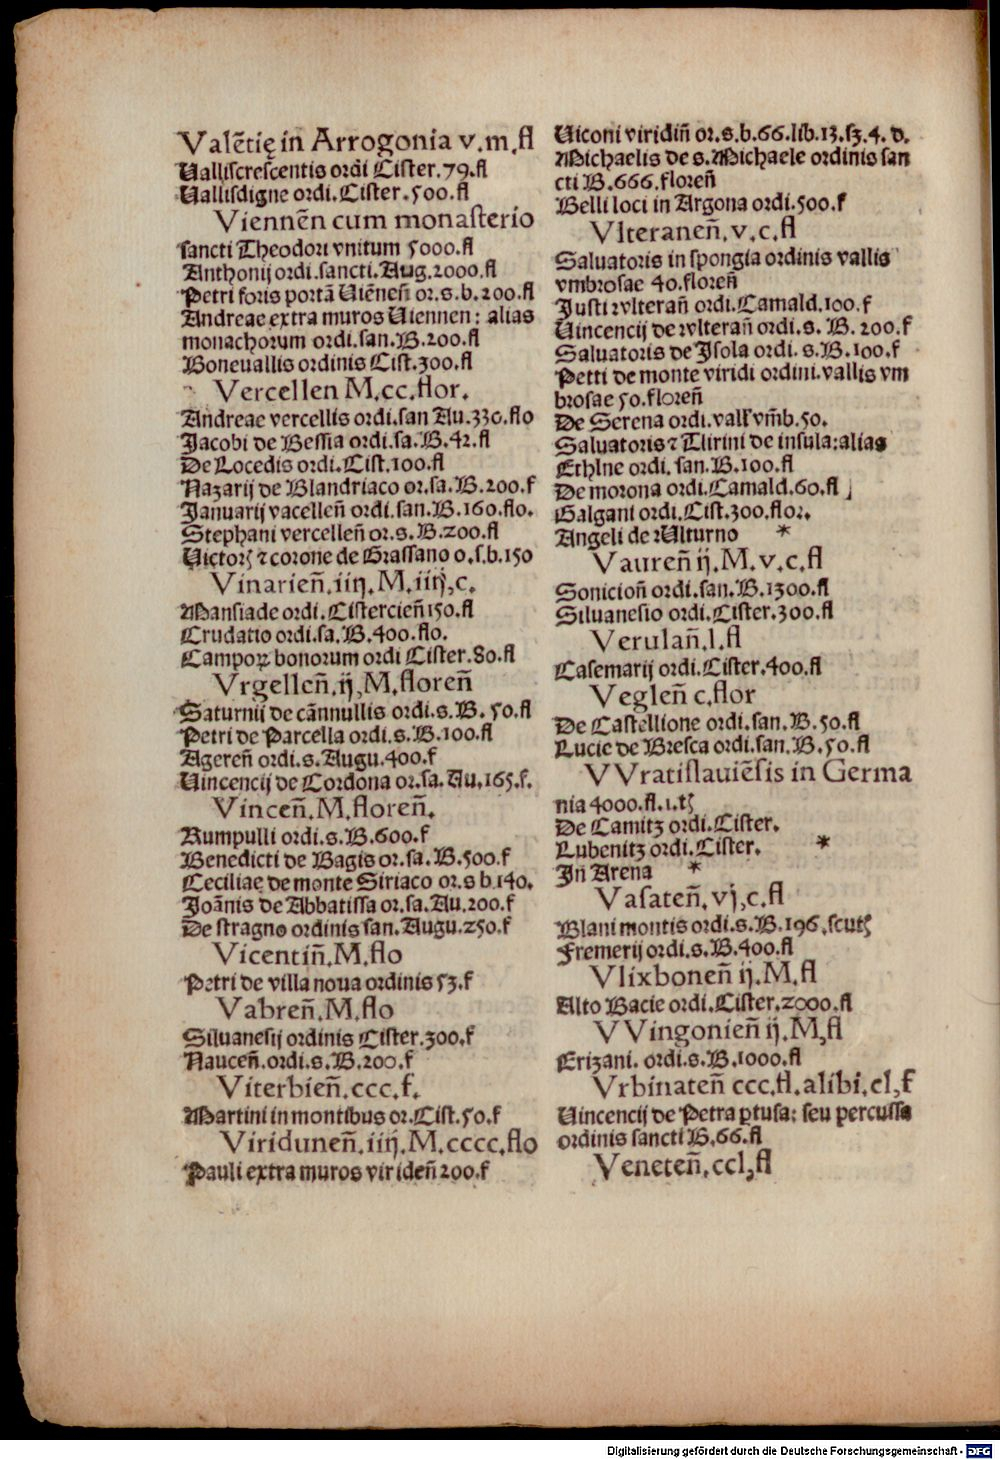 Valētię in Arrogonia v.m.fl
Walliscrescentis ordi Cister.79.fl
Vallisdigne ordi.Cister.500.fl
Viennēn cum monasterio
sancti Theodori vnitum 5000.fl
Anthonij ordi.sancti.Aug.2000.fl
Petri foris portā Viēnesi or.s.b.200.fl
Andreae extra muros Viennen: alias
monachorum ordi.san.B.200.fl
Boneuallis ordinis Cist.300.fl
Vercellen M.cc.flor.
Andreae vercellis ordi.san Au.330.flo
Jacobi de Bessia ordi.sa.B.42.fl
De Locedis ordi.Cist.100.fl
Nazarij de Blandriaco or.sa.B.200.f
Januarij vacellen̄ ordi.san.B.160.flo.
Stephani vercellen̄ or.s.B.200.fl
Victorꝭ ⁊ corone de Grassano o.s.b.150
Vinarien̄.iiij.M.iiij,c.
Mansiade ordi.Cistercien̄ 150.fl
Crudatio ordi.sa.B.400.flo.
Campoꝝ bonorum ordi Cister.80.fl
Vrgellen̄.ij,M.floren̄
Saturnij de cān̄nullis ordi.s.B.50.fl
Petri de Parcella ordi.s.B.100.fl
Ageren̄ ordi.s.Augu.400.f
Vincencij de Cordona or.sa.Au.165.f.
Vincen̄.M.floren̄.
Rumpulli ordi.s.B.600.f
Benedicti de Bagis or.sa.B.500.f
Ceciliae de monte Siriaco or.s b.140.
Joānis de Abbatissa or.sa.Au.200.f
De stragno ordinis san.Augu.250.f
Vicentin̄.M.flo
Petri de villa noua ordinis 53.f
Vabren̄.M.flo
Siluanesij ordinis Cister.300.f
Naucen̄.ordi.s.B.200.f
Viterbien̄.ccc.f.
Martini in montibus or.Cist.50.f
Viridunen̄.iiij.M.cccc.flo
Pauli extra muros viriden̄ 200.f
Viconi viridin̄ or.s.b.66.lib.13.sz.4.d.
Michaelis de s.Michaele ordinis san
cti B.666.floren̄
Belli loci in Argona ordi.500.f
Vlteranen̄.v.c.fl
Saluatoris in spongia ordinis vallis
vmbrosae 40.floren̄
Justi ꝛvlteran̄ ordi.Camald.100.f
Vincencij de ꝛvlteran̄ ordi.s.B.200.f
Saluatoris de Isola ordi.s.B.100.f
Petti de monte viridi ordini.vallis vm
brosae 50.floren̄
De Serena ordi.vall' vm̄b.50.
Saluatoris ⁊ Tlirini de insula:alias
Ethlne ordi.san.B.100.fl
De morona ordi.Camald.60.fl
Galgani ordi.Cist.300.flor.
Angeli de ꝛUlturno *
Vauren̄ ij.M.v.c.fl
Sonicion̄ ordi.san.B.1300.fl
Siluanesio ordi.Cister.300.fl
Verulan̄.l.fl
Casemarij ordi.Cister.400.fl
Veglen̄ c.flor
De Castellione ordi.san.B.50.fl
Lucie de Bresca ordi.san.B.50.fl
VVratislauiēsis in Germa
nia 4000.fl.1.tꝭ
De Camitz ordi.Cister.
Lubenitz ordi.Cister. *
In̄ Arena *
Vasaten̄.vj,c.fl
Blani montis ordi.s.B.196.scutꝭ
Fremerij ordi.s.B.400.fl
Vlixbonen̄ ij.M.fl
Alto Bacie ordi.Cister.2000.fl
VVingonien̄ ij.M,fl
Erizani.ordi.s.B.1000.fl
Vrbinaten̄ ccc.fl.alibi.cl,f
Vincencij de Petra ꝑtusa: seu percussa
ordinis sancti B.66.fl
Veneten̄.ccl,fl
Digitalisierung gefördert durch die Deutsche Forschungsgemeinschaft - DFG